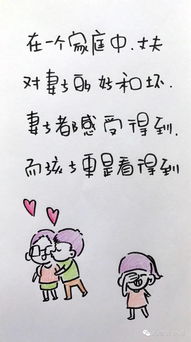 在一个家庭中.丈夫
对妻子的好和坏.
妻子都感受得到.
而孩子更是看得到